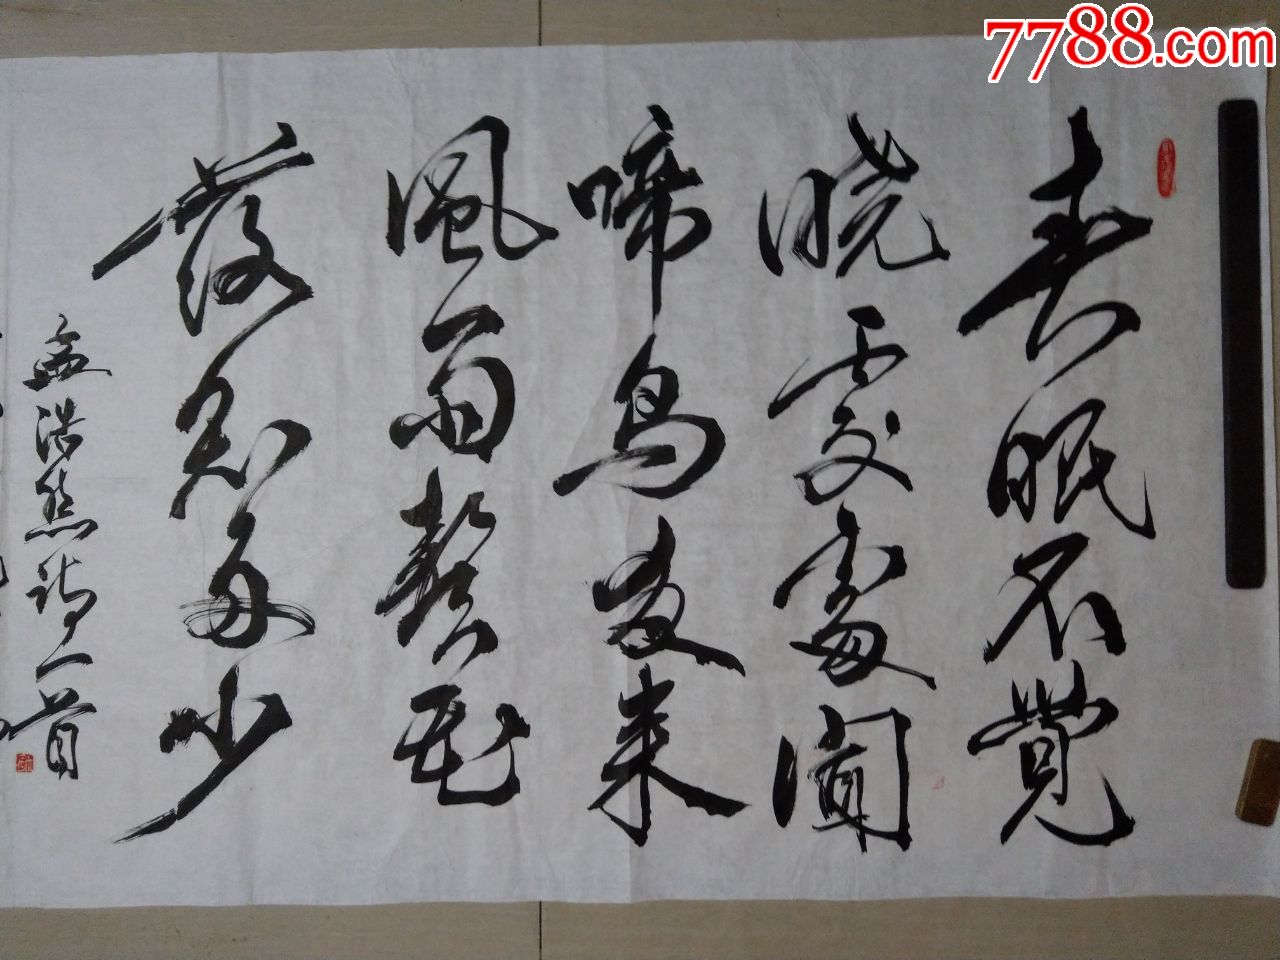 7788.com
春眠不覺
晓處處闻
啼鸟夜来
風雨聲花
落知多少
孟浩然诗一首